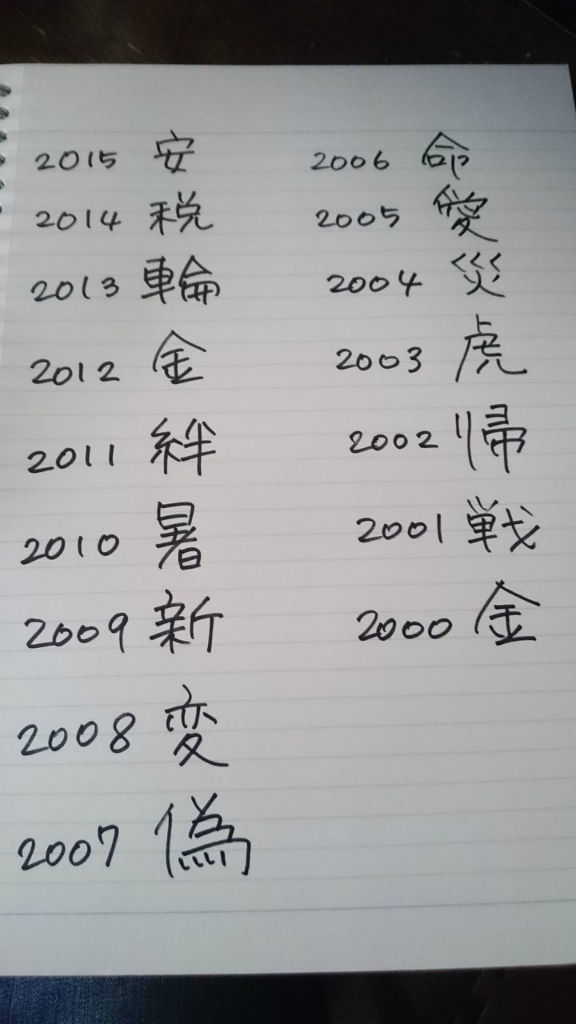 2015 安
2014 税
2013 輪
2012 金
2011 絆
2010 暑
2009 新
2008 変
2007 偽
2006 命
2005 愛
2004 災
2003 虎
2002 帰
2001 戦
2000 金